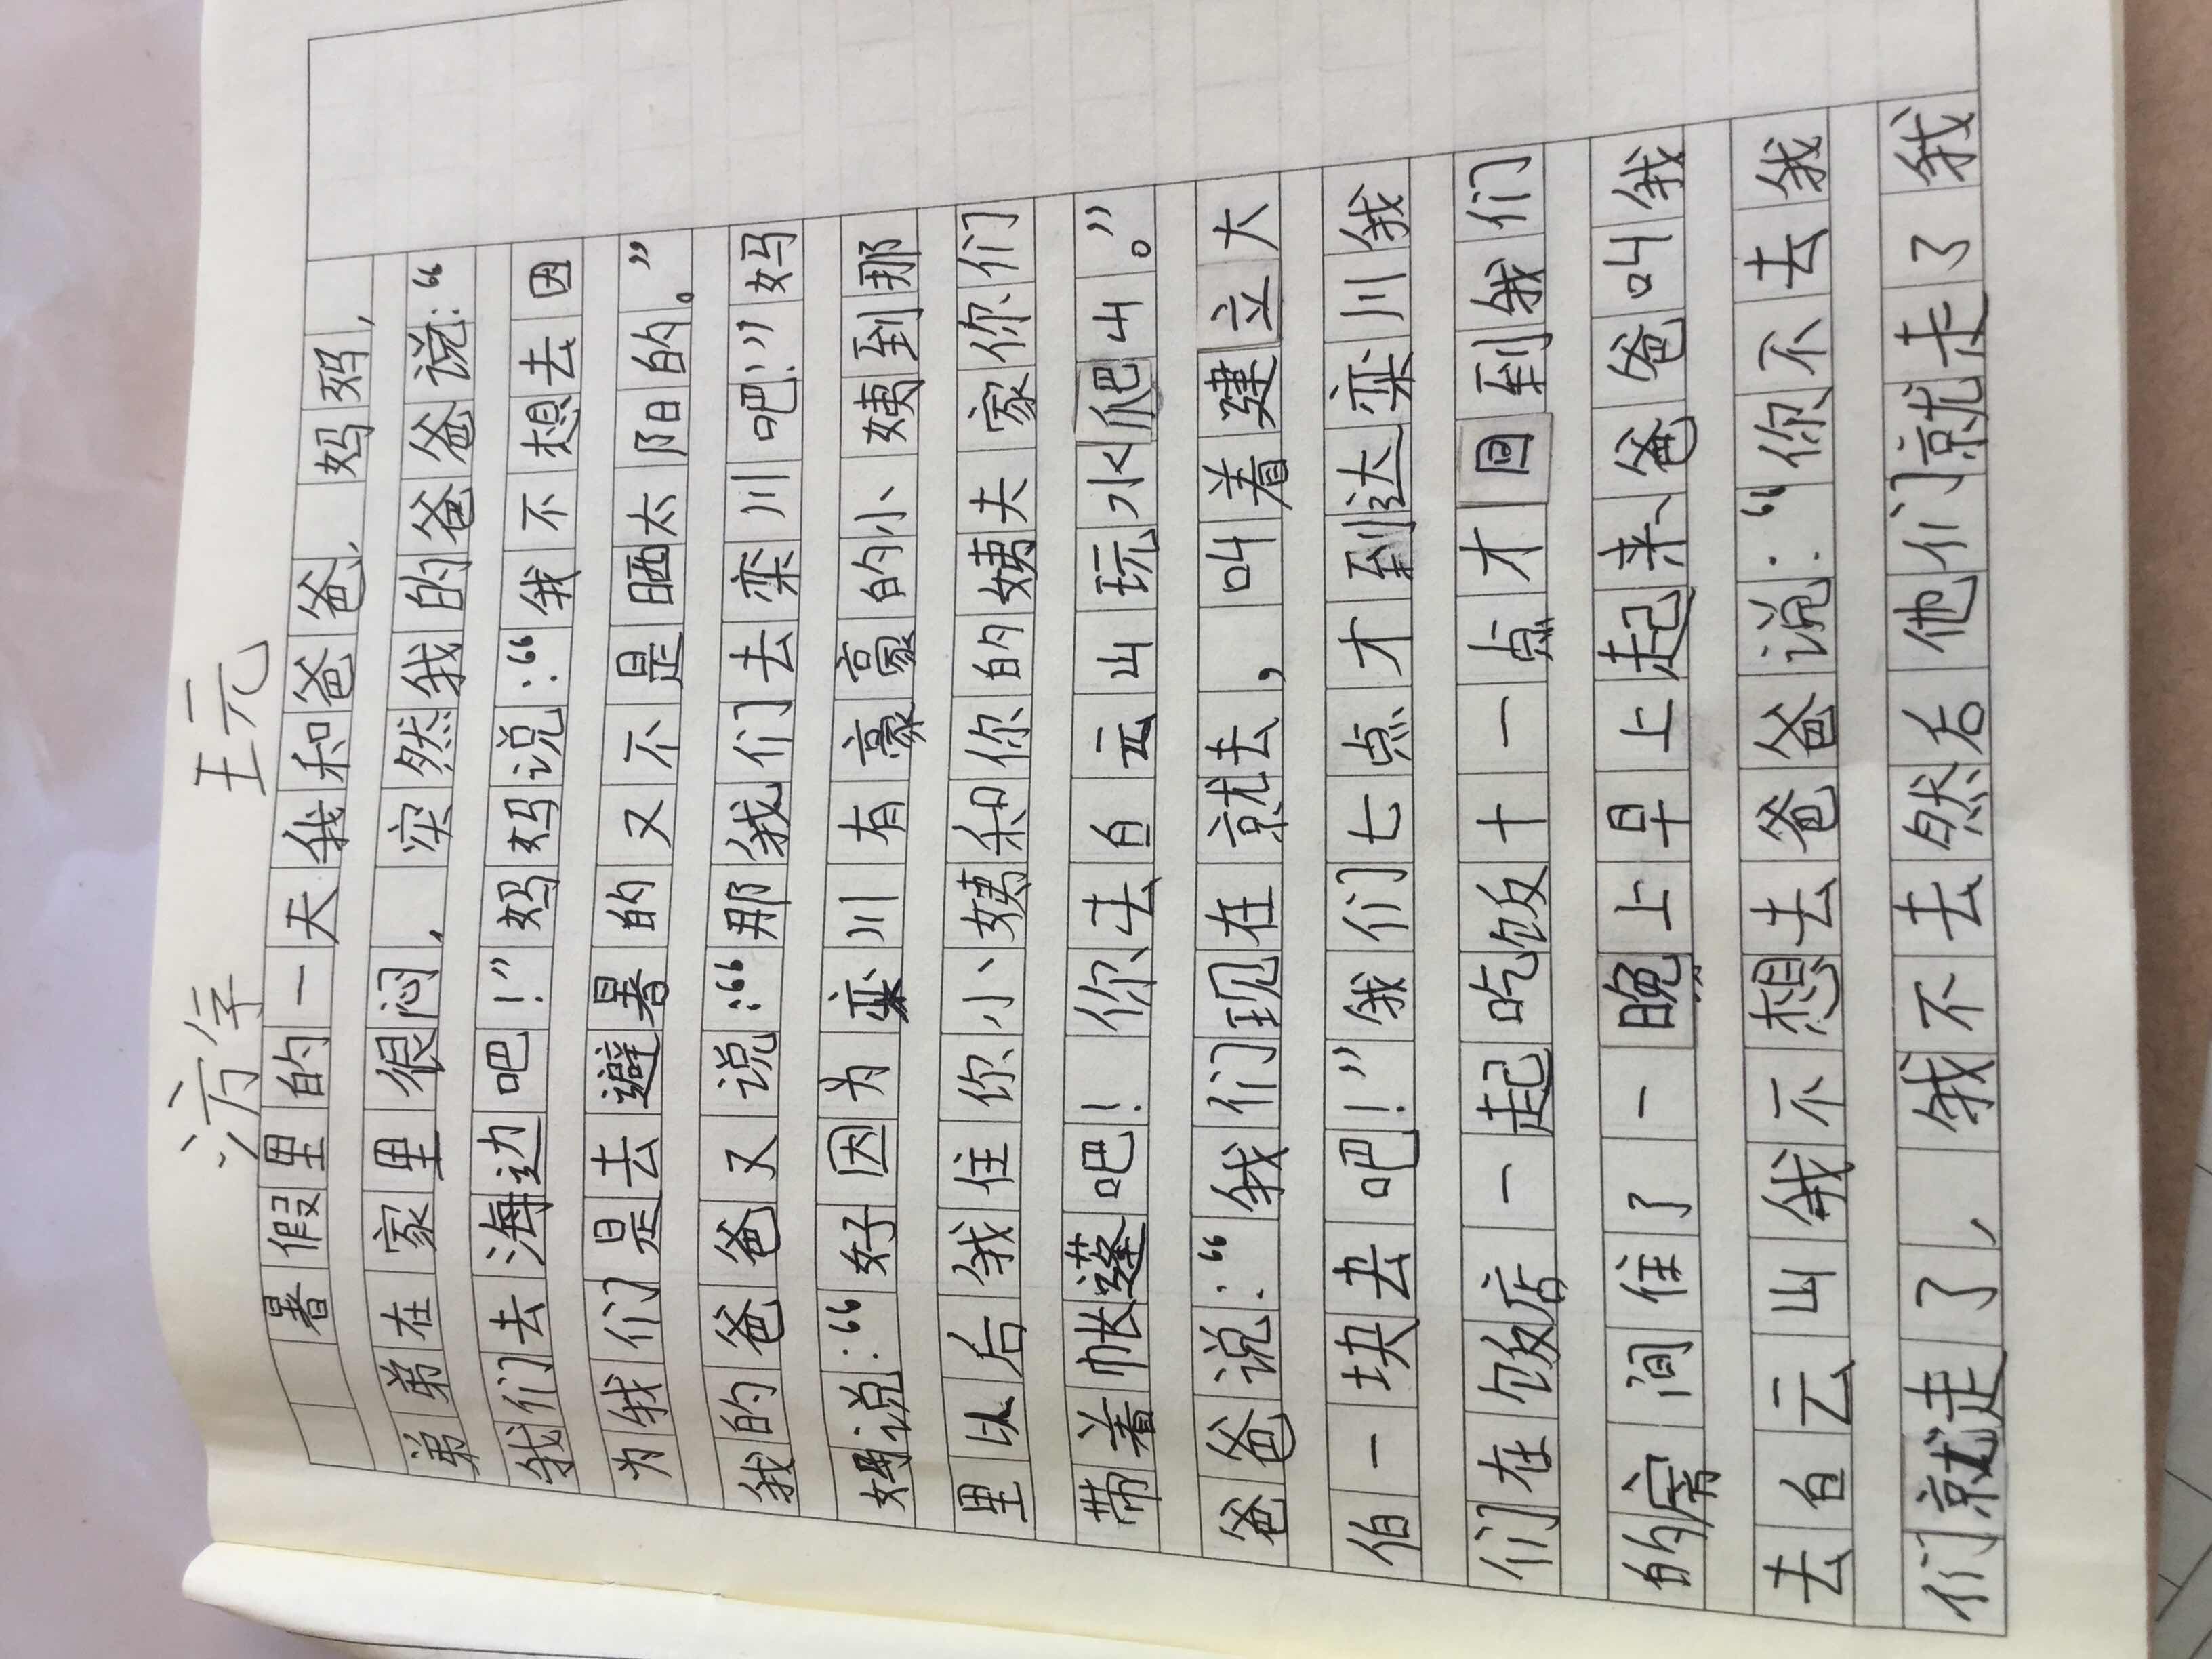 汸年 王元
暑假里的一天我和爸爸、妈妈,
弟弟在家里很闷,突然我的爸爸说:“
我们去海边吧!”妈妈说:“我不想去因
为我们是去避暑的又不是晒太阳的。”
我的爸爸又说:“那我们去栾川吧!”妈
妈说:“好因为栾川有豪豪的小姨到那
里以后我住你小姨和你的姨夫家你们
带着帐蓬吧!你去白云山玩水爬山。”
爸爸说:“我们现在就去,叫着建立大
伯一块去吧!”我们七点才到达栾川我
们在饭店一起吃饭十一点才回到我们
的房间住了一晚上早上起来、爸爸叫我
去白云山我不想去爸爸说:“你不去我
们就走了,我不去然后他们就走了我